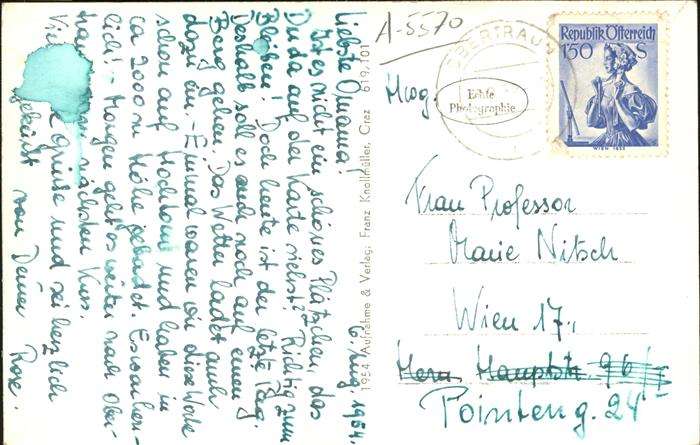 6. Aug. 1954.
Liebste Omama!
Ist es nicht ein schönes Plätzchen, das
Du da auf der Karte siehst? Richtig zum
Bleiben! Doch heute ist der letzte Tag.
Deshalb soll es auch noch auf einen
Berg gehen. Das Wetter ladet auch
dazu ein. - Einmal waren wir diese Woche
schon auf Hochtour und haben in
ca 2000 m Höhe gebadet. Es war herr-
lich! - Morgen geht es weiter nach Ober-
nächsten Kurs.
Grüße und sei herzlich
geküßt von Deiner Rose.
1954 / Aufnahme & Verlag: Franz Knollmüller, Graz 619.101
A-5570
OBERTRAUN
Echte
Photographie
Republik Österreich
1'50 S
WIEN 1853
Frau Professor
Marie Nitsch
Wien 17.,
Hern. Hauptstr. 96
Pointeng. 24